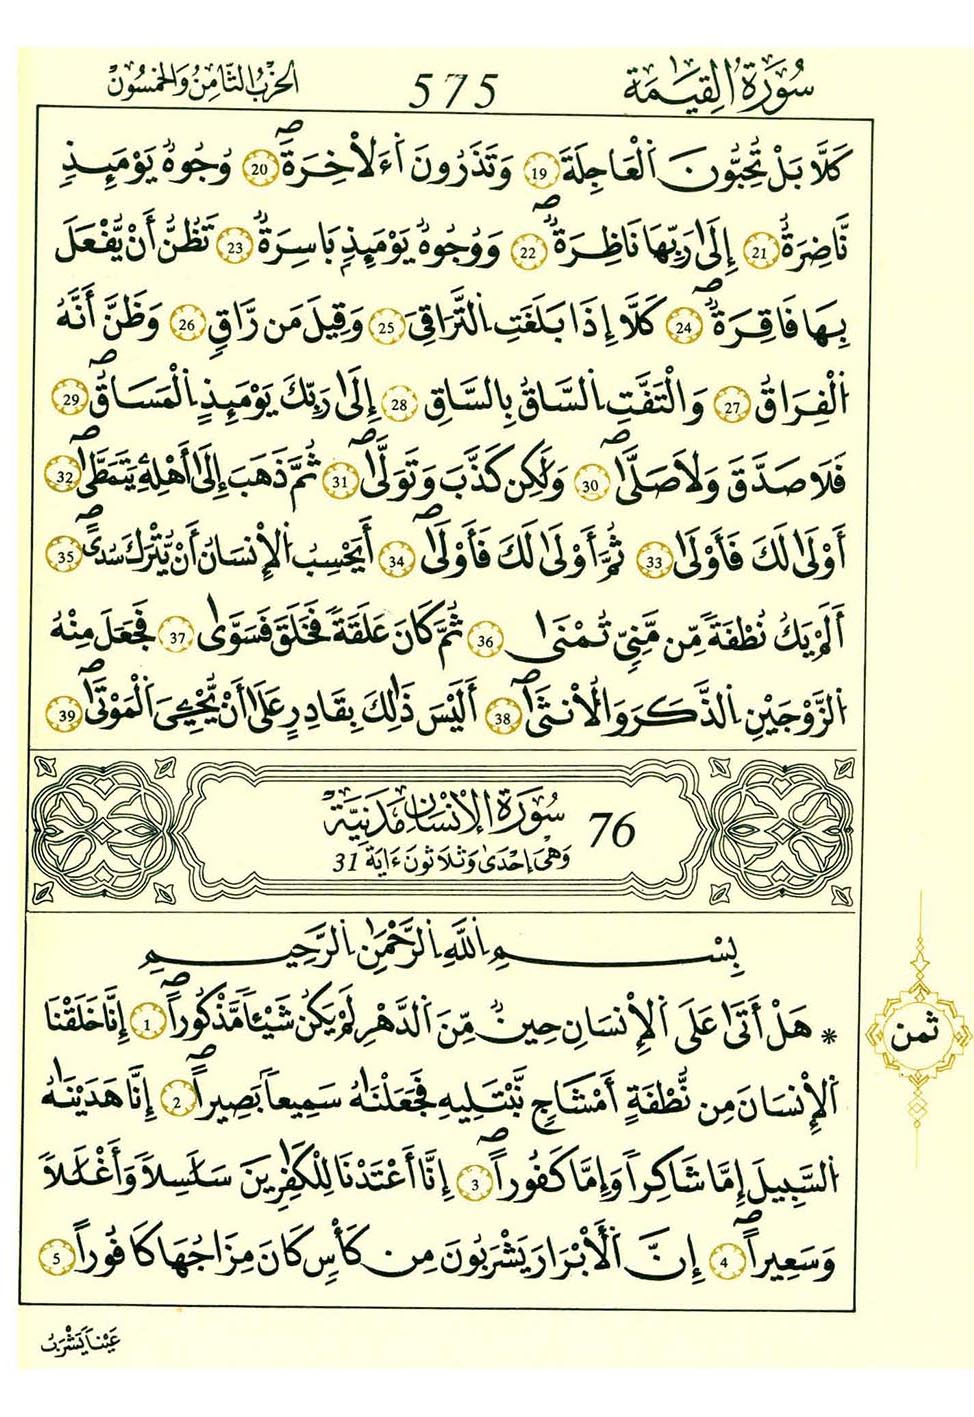 سُورَةُ الْقِيَٰمَةِ
575
الحزب الثامن والخمسون
كَلَّا بَلْ تُحِبُّونَ اَ۬لْعَاجِلَةَ 19 وَتَذَرُونَ اَ۬ءَلَاخِرَةَۖ 20 وُجُوهٞ يَوْمَئِذٖ
نَّاضِرَةٌ 21 إِلَىٰ رَبِّهَا نَاظِرَةٞۖ 22 وَوُجُوهٞ يَوْمَئِذِۢ بَاسِرَةٞ 23 تَظُنُّ أَنْ يُّفْعَلَ
بِهَا فَاقِرَةٞۖ 24 كَلَّا إِذَا بَلَغَتِ اِ۬لتَّرَاقِيَ 25 وَقِيلَ مَن رَّاقٖ 26 وَظَنَّ أَنَّهُ
اُ۬لْفِرَاقُ 27 وَالْتَفَّتِ اِ۬لسَّاقُ بِالسَّاقِ 28 إِلَىٰ رَبِّكَ يَوْمَئِذٍ اِ۬لْمَسَاقُۖ 29
فَلَا صَدَّقَ وَلَا صَلَّىٰۖ 30 وَلَٰكِن كَذَّبَ وَتَوَلَّىٰۖ 31 ثُمَّ ذَهَبَ إِلَىٰ أَهْلِهِۦ يَتَمَطَّىٰۖ 32
أَوْلَىٰ لَكَ فَأَوْلَىٰ 33 ثُمَّ أَوْلَىٰ لَكَ فَأَوْلَىٰۖ 34 أَيَحْسِبُ اُ۬لْإِنسَانُ أَنْ يُّتْرَكَ سُدىًۖ 35
أَلَمْ يَكُ نُطْفَةٗ مِّن مَّنِيّٖ تُمْنَىٰ 36 ثُمَّ كَانَ عَلَقَةٗ فَخَلَقَ فَسَوَّىٰ 37 فَجَعَلَ مِنْهُ
اُ۬لزَّوْجَيْنِ اِ۬لذَّكَرَ وَالُانثَىٰۖ 38 أَلَيْسَ ذَٰلِكَ بِقَٰدِرٍ عَلَىٰ أَنْ يُّحْـِۧيَ اَ۬لْمَوْتَىٰۖ 39
76 سُورَةُ الْإِنْسَانِ مَدَنِيَّة
وَهْيَ إِحْدَىٰ وَثَلَاثُونَ ءَايَة 31
بِسْمِ اِ۬للَّهِ اِ۬لرَّحْمَٰنِ اِ۬لرَّحِيمِ
* هَلْ أَتَىٰ عَلَى اَ۬لْإِنسَانِ حِينٞ مِّنَ اَ۬لدَّهْرِ لَمْ يَكُن شَيْـٔاٗ مَّذْكُوراًۖ 1 إِنَّا خَلَقْنَا
اَ۬لْإِنسَانَ مِن نُّطْفَةٍ أَمْشَاجٖ نَّبْتَلِيهِ فَجَعَلْنَٰهُ سَمِيعاَۢ بَصِيراًۖ 2 إِنَّا هَدَيْنَٰهُ
اُ۬لسَّبِيلَ إِمَّا شَاكِراٗ وَإِمَّا كَفُوراًۖ 3 إِنَّا أَعْتَدْنَا لِلْكَٰفِرِينَ سَلَٰسِلاٗ وَأَغْلَٰلاٗ
وَسَعِيراًۖ 4 إِنَّ اَ۬لْأَبْرَارَ يَشْرَبُونَ مِن كَأْسٖ كَانَ مِزَاجُهَا كَافُوراً 5
ثمن
عَيْناٗ يَشْرَبُ